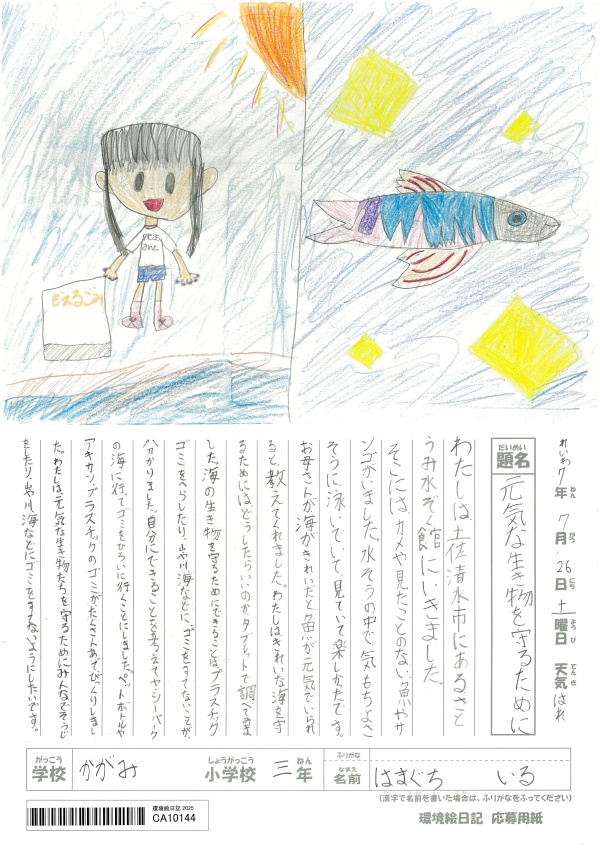 もえるごみ
れいわ7年 7月 26日 土曜日 天気 はれ
ねん
がつ
にち
ようび
てんき
だいめい
題名
元気な生き物を守るために
わたしは、土佐清水市にあるさと
うみ水ぞく館にいきました。
そこには、カメや見たことのない魚やサ
ンゴがいました。水そうの中で、気もちよさ
そうに泳いでいて、見ていて楽しかたです。
お母さんが海がきれいだと魚が元気でいられ
ると、教えてくれました。わたしはきれいな海を守
るためにはどうしたらいいのかタブレットで調べてみま
した。海の生き物を守るためにできることは、プラスチック
ゴミをへらしたり、山や川、海などに、ゴミをすてないことが、
分かりました。自分にできることを考えてヤ・シーパーク
の海に行てゴミをひろいに行くことにしました。ペットボトルや
アキカン、プラスチックのゴミがたくさんあてびくりしまし
た。わたしは、元気な生き物たちを守るためにみんなでそうじ
をしたり、山や川、海などにゴミをすてないようにしたいです。
がっこう
学校
かがみ
しょうがっこう
小学校
三
ねん
年
ふりがな
なまえ
名前
はまぐち いる
(漢字で名前を書いた場合は、ふりがなをふってください)
環境絵日記 2025
CA10144
環境絵日記 応募用紙